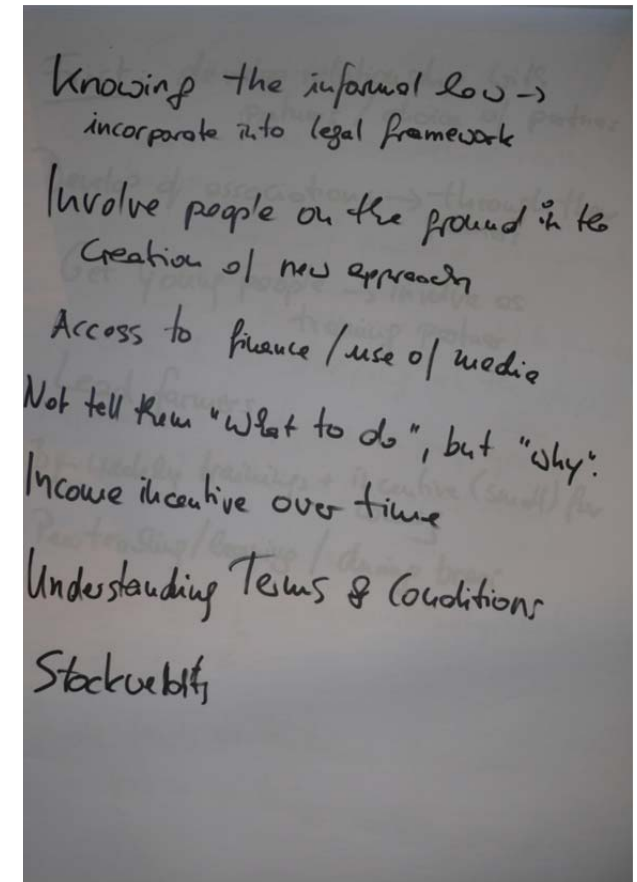 Knowing the informal low →
incorporate into legal framework
Involve people on the ground in the
Creation of new approach
Access to finance / use of media
Not tell them "what to do", but "why".
Income incentive over time
Understanding Terms & Conditions